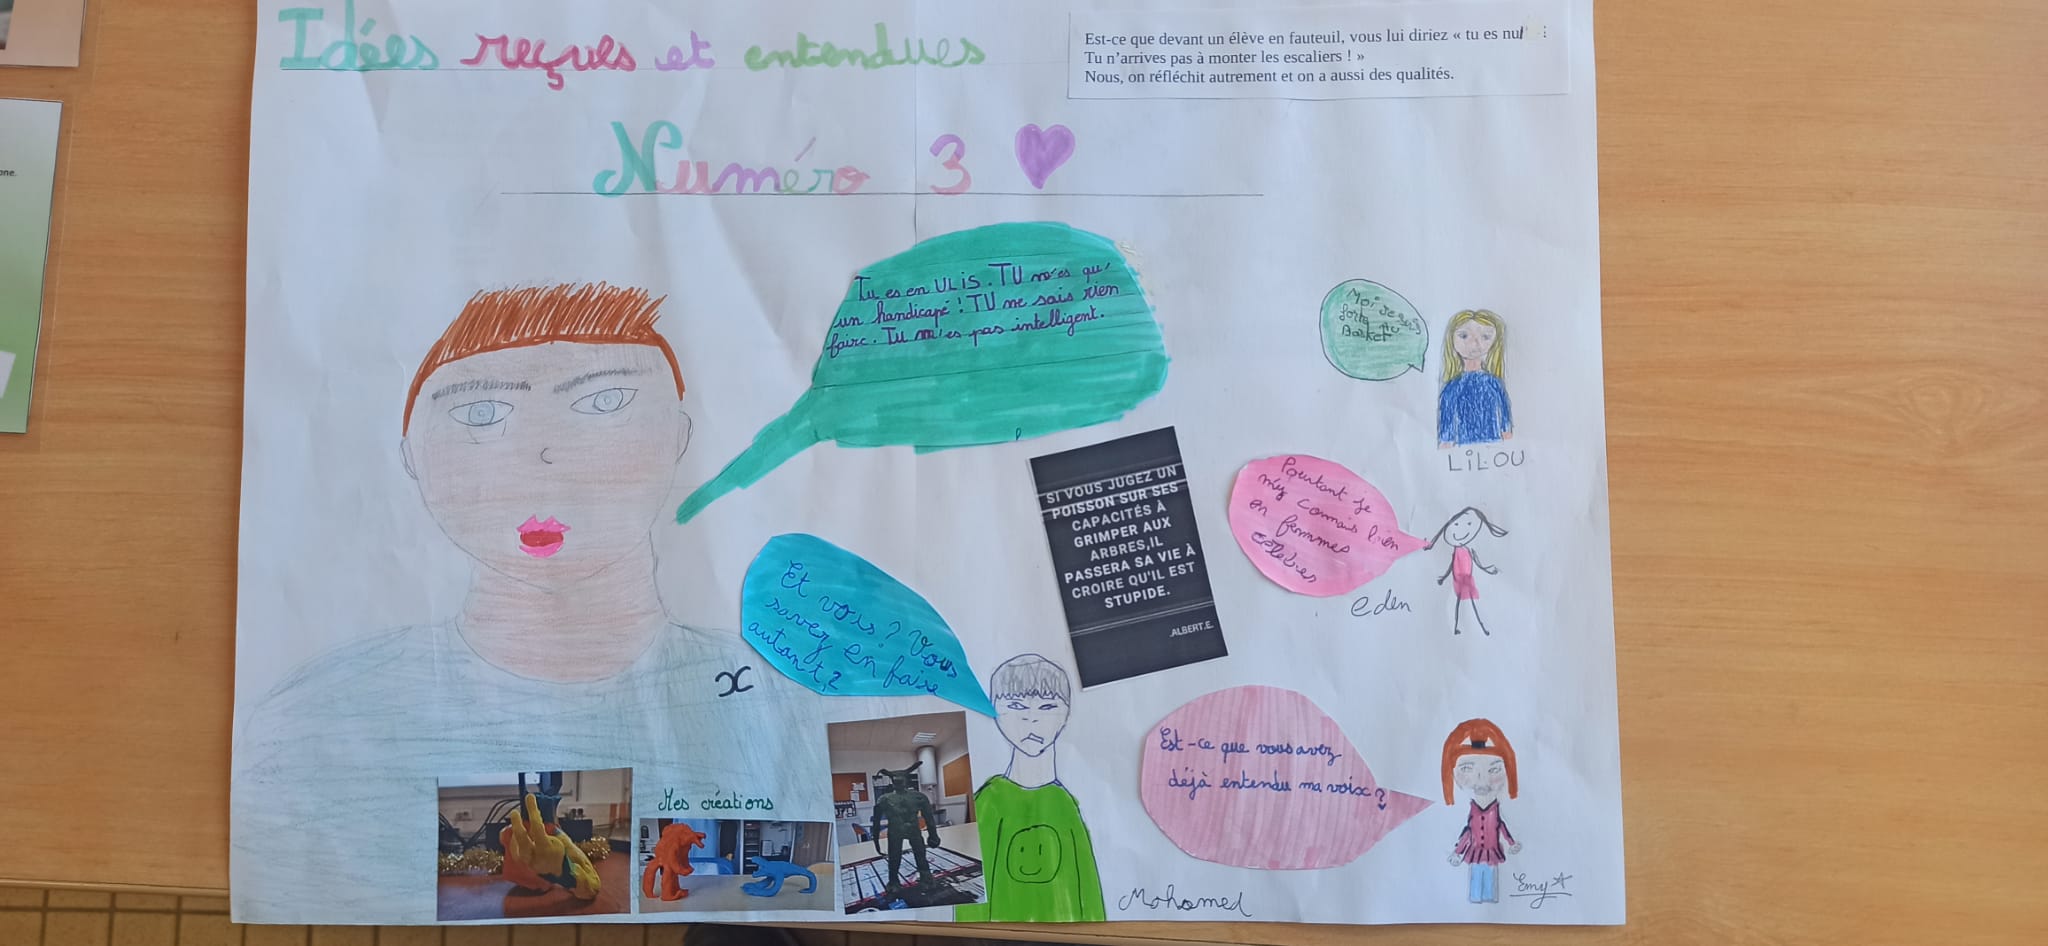 Idées reçues et entendues
Est-ce que devant un élève en fauteuil, vous lui diriez « tu es nul
Tu n'arrives pas à monter les escaliers ! »
Nous, on réfléchit autrement et on a aussi des qualités.
Numéro 3
Tu es en ULiS. TU n'es qu'
un handicapé ! TU ne sais rien
faire. Tu n'es pas intelligent.
Moi je suis
forte au
Basket
LiLOU
SI VOUS JUGEZ UN
POISSON SUR SES
CAPACITÉS À
GRIMPER AUX
ARBRES,IL
PASSERA SA VIE À
CROIRE QU'IL EST
STUPIDE.
.ALBERT.E.
Pourtant je
m'y connais bien
en femmes
célèbres
eden
Et vous ? Vous
savez en faire
autant ?
x
Mes créations
Mohamed
Est-ce que vous avez
déjà entendu ma voix ?
Emy